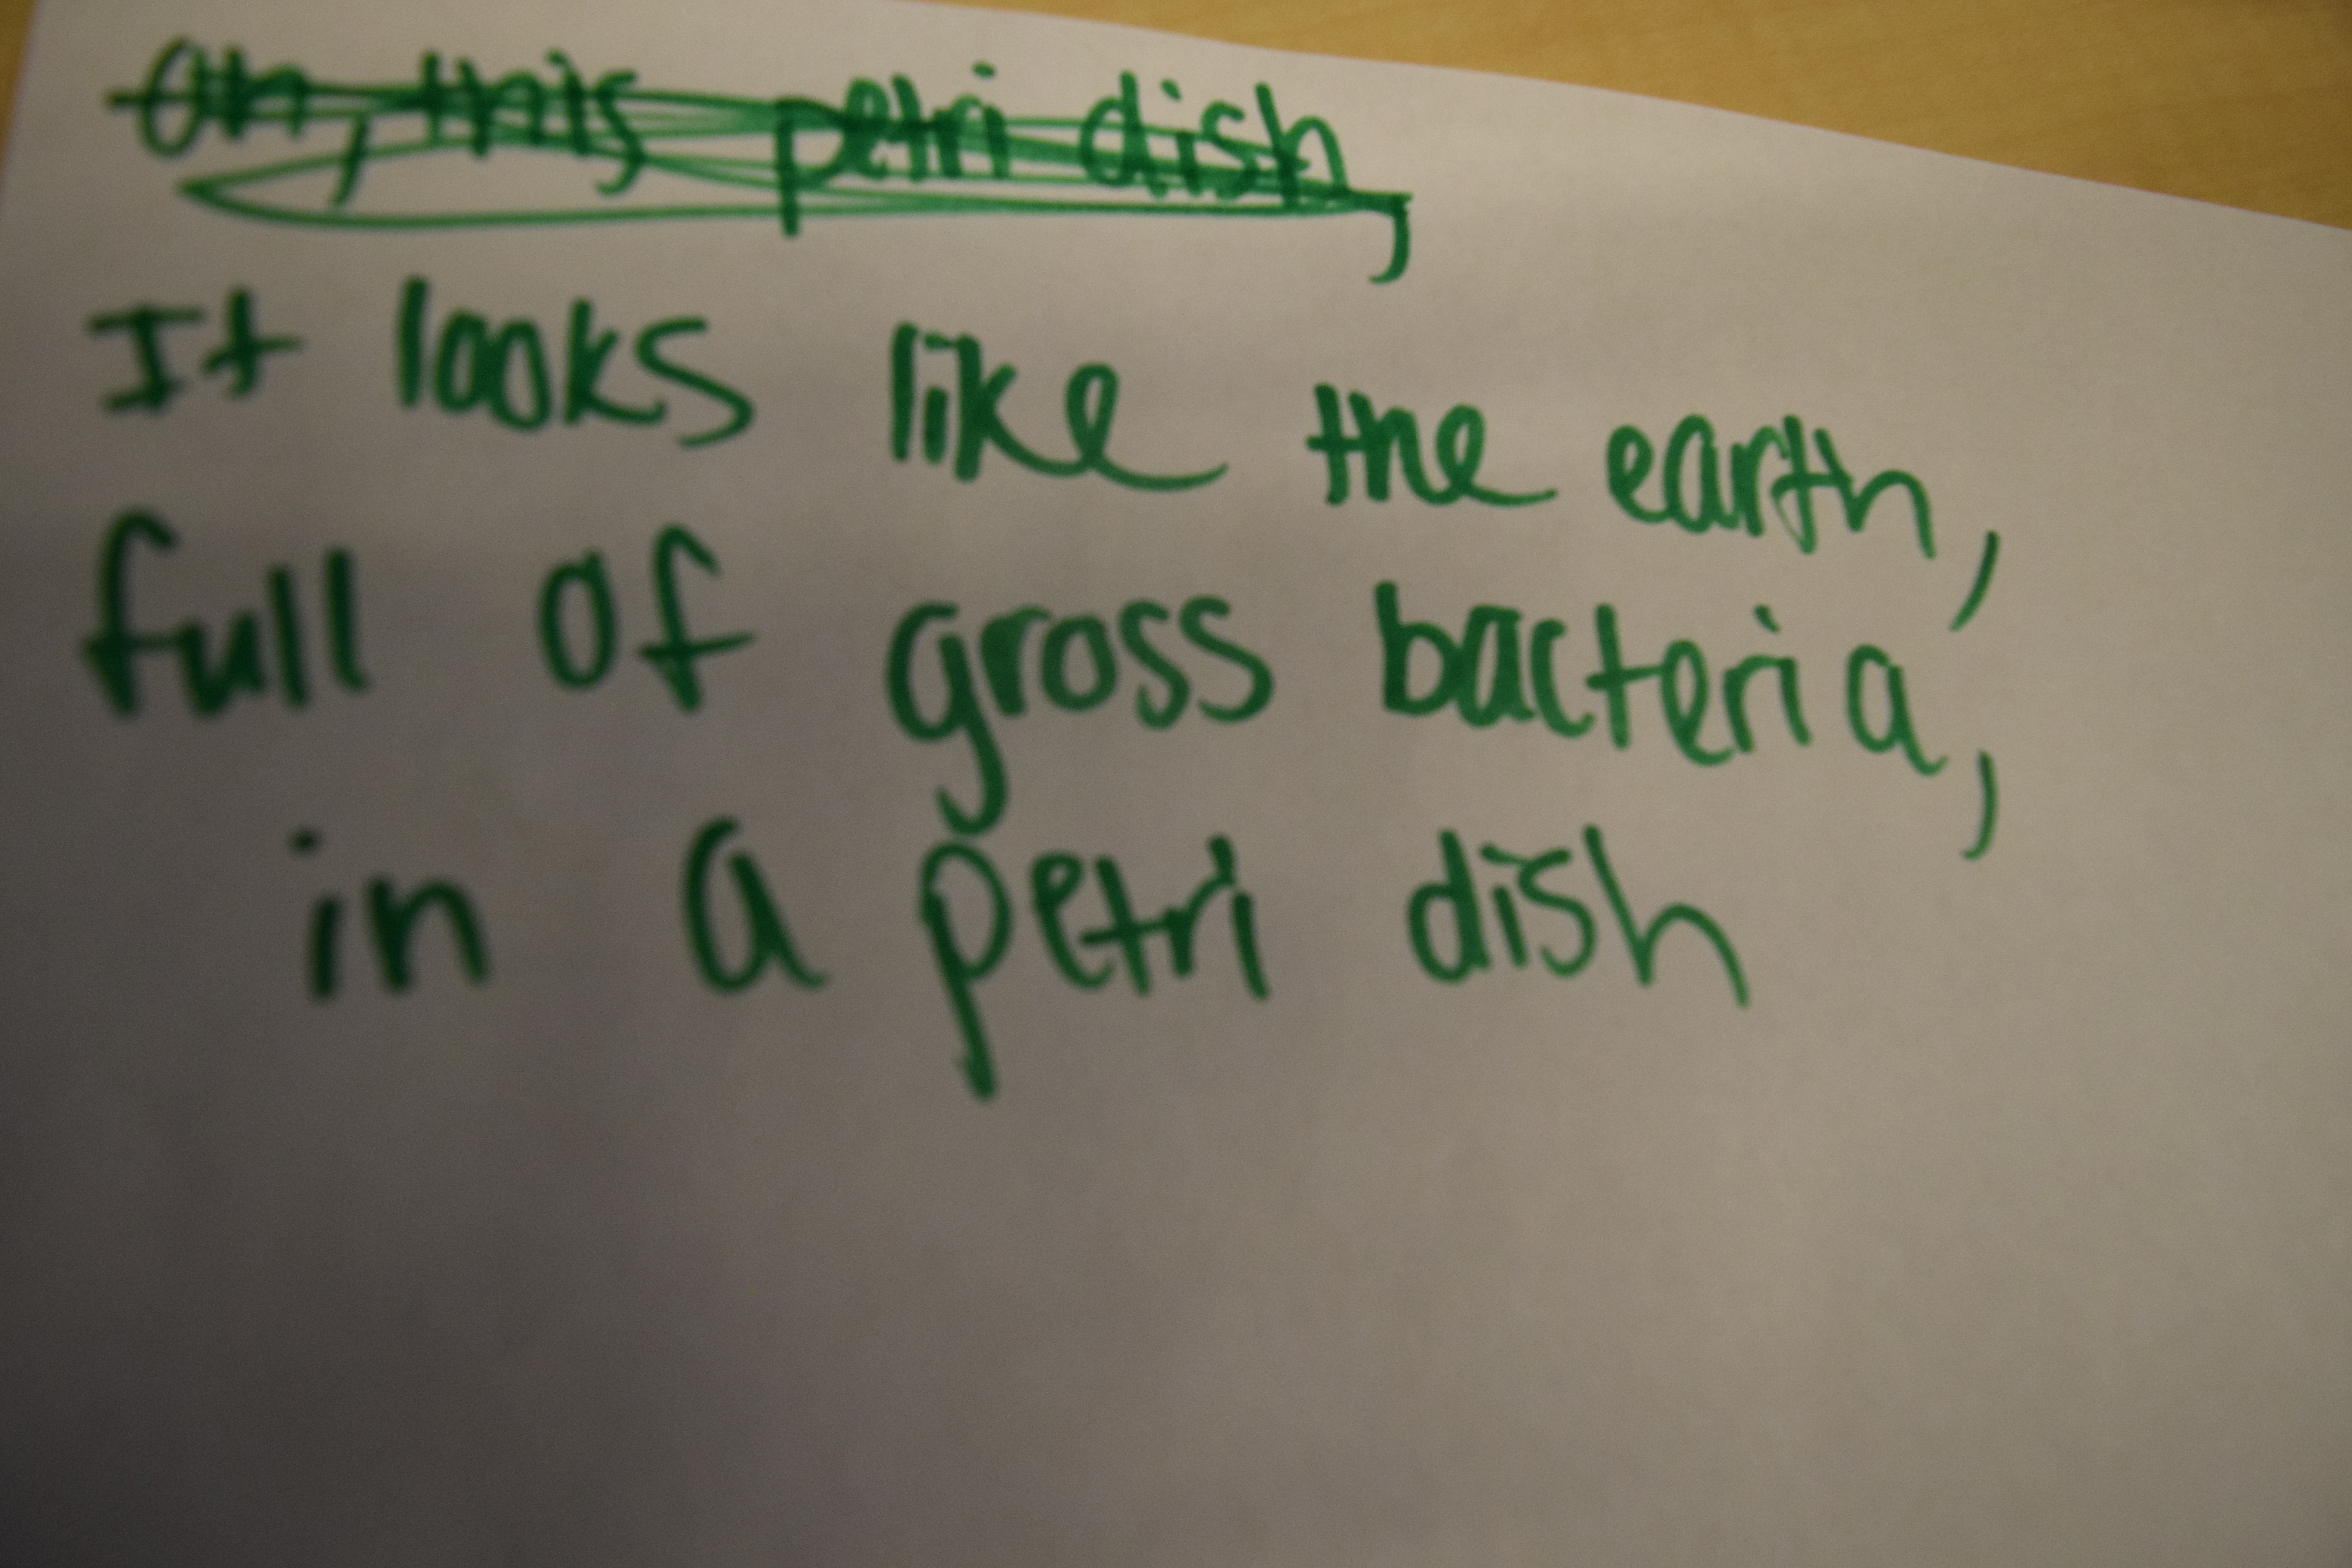 Oh, this petri dish,
It looks like the earth,
full of gross bacteria,
in a petri dish